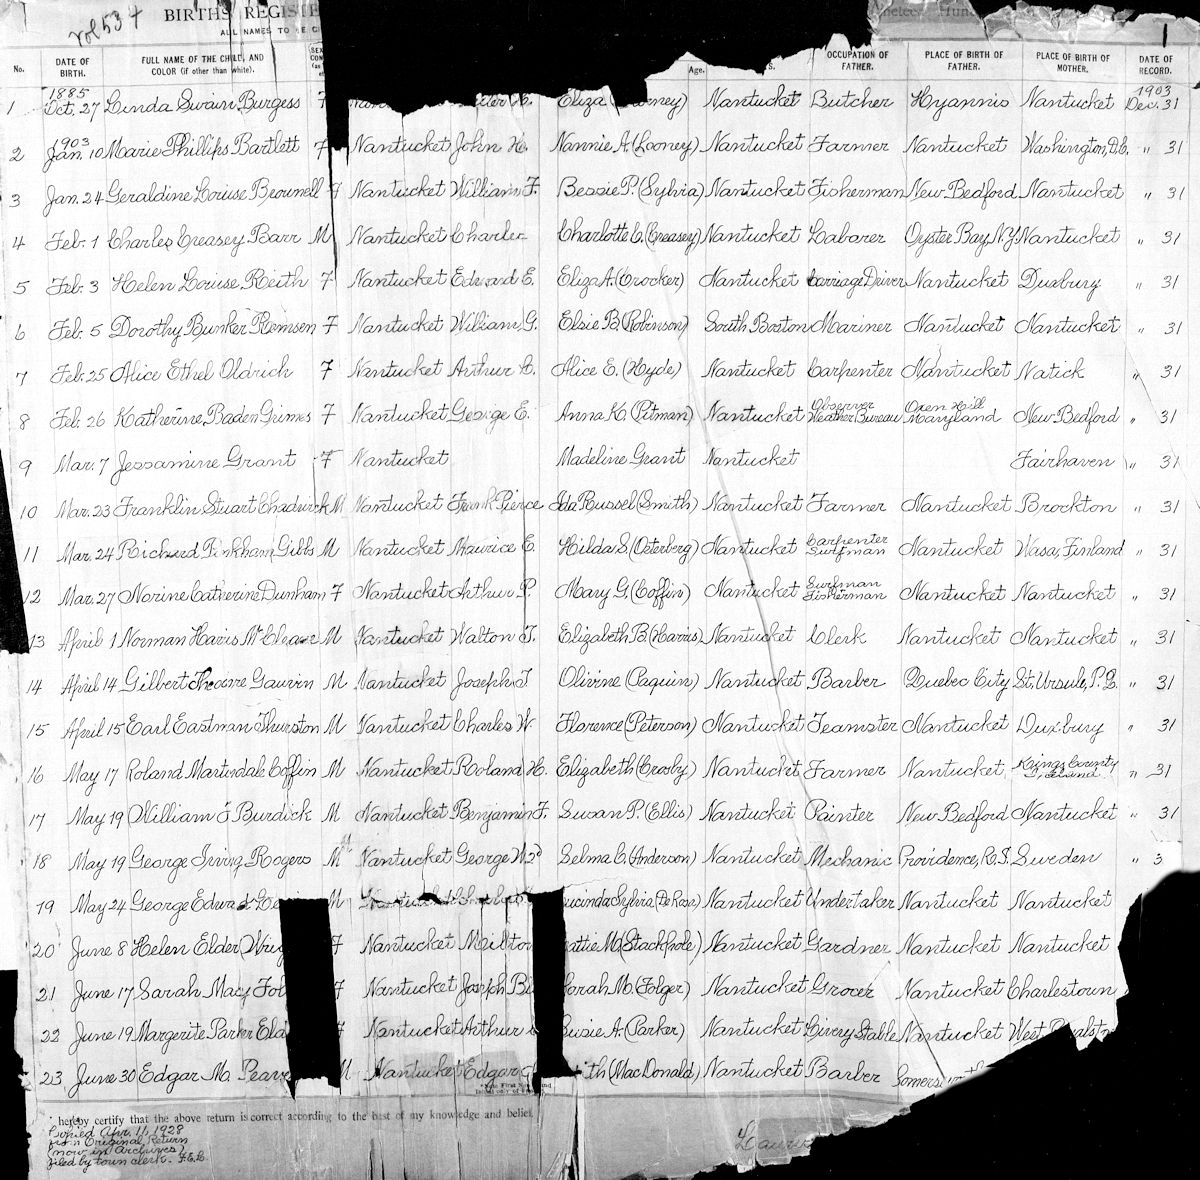 vol 534
BIRTHS REGISTE
ALL NAMES TO
No. DATE OF BIRTH. FULL NAME OF THE CHILD, AND COLOR (if other than white). Age. OCCUPATION OF FATHER. PLACE OF BIRTH OF FATHER. PLACE OF BIRTH OF MOTHER. DATE OF RECORD.
1885 1903
1 Oct. 27 Linda Swain Burgess F Eliza Nantucket Butcher Hyannis Nantucket Dec. 31
1903
2 Jan. 10 Marie Phillips Bartlett F Nantucket John H. Nannie A. (Looney) Nantucket Farmer Nantucket Washington, D.C. " 31
3 Jan. 24 Geraldine Louise Brownell F Nantucket William F. Bessie P. (Sylvia) Nantucket Fisherman New Bedford Nantucket " 31
4 Feb. 1 Charles Creasey Barr M Nantucket Charles Charlotte C. (Creasey) Nantucket Laborer Oyster Bay, N.Y. Nantucket " 31
5 Feb. 3 Helen Louise Reith F Nantucket Edward E. Eliza A. (Crocker) Nantucket Carriage Driver Nantucket Duxbury " 31
6 Feb. 5 Dorothy Bunker Remsen F Nantucket William G. Elsie B. (Robinson) South Boston Mariner Nantucket Nantucket " 31
7 Feb. 25 Alice Ethel Oldrich F Nantucket Arthur C. Alice E. (Hyde) Nantucket Carpenter Nantucket Natick " 31
8 Feb. 26 Katherine Baden Grimes F Nantucket George E. Anna K. (Pitman) Nantucket Observer Weather Bureau Oxen Hill Maryland New Bedford " 31
9 Mar. 7 Jessamine Grant F Nantucket Madeline Grant Nantucket Fairhaven " 31
10 Mar. 23 Franklin Stuart Chadwick M Nantucket Frank Pierce Ida Russel (Smith) Nantucket Farmer Nantucket Brockton " 31
11 Mar. 24 Richard Pinkham Gibbs M Nantucket Maurice E. Hilda S. (Osterberg) Nantucket Carpenter Surfman Nantucket Wasa, Finland " 31
12 Mar. 27 Norine Catherine Dunham F Nantucket Arthur P. Mary G. (Coffin) Nantucket Surfman Fisherman Nantucket Nantucket " 31
13 April 1 Norman Harris Mc Chase M Nantucket Walton T. Elizabeth B. (Harris) Nantucket Clerk Nantucket Nantucket " 31
14 April 14 Gilbert Theodore Gauvin M Nantucket Joseph T Olivine (Paquin) Nantucket Barber Quebec City St. Ursule, P.Q. " 31
15 April 15 Earl Eastman Thurston M Nantucket Charles W Florence (Peterson) Nantucket Teamster Nantucket Duxbury " 31
16 May 17 Roland Martindale Coffin M Nantucket Roland H. Elizabeth (Crosby) Nantucket Farmer Nantucket Kings County Ireland " 31
17 May 19 William F Burdick M Nantucket Benjamin F. Susan P. (Ellis) Nantucket Painter New Bedford Nantucket " 31
18 May 19 George Irving Rogers M Nantucket George W. 2d Selma C. (Anderson) Nantucket Mechanic Providence, R.I. Sweden " 3
19 May 24 George Edward M Sylvia (De Rosa) Nantucket Undertaker Nantucket Nantucket
20 June 8 Helen Elder F Nantucket Milton M. (Stackpole) Nantucket Gardner Nantucket Nantucket
21 June 17 Sarah Macy Fol F Nantucket Joseph Sarah M. (Folger) Nantucket Grocer Nantucket Charlestown
22 June 19 Margerite Parker F Nantucket Arthur Susie A. (Parker) Nantucket Livery Stable Nantucket West
23 June 30 Edgar M. M Nantucket Edgar (MacDonald) Nantucket Barber
hereby certify that the above return is correct according to the best of my knowledge and belief.
Copied Apr. 11, 1928
from Original Return
(now in archives)
filed by town clerk. F.E.C.